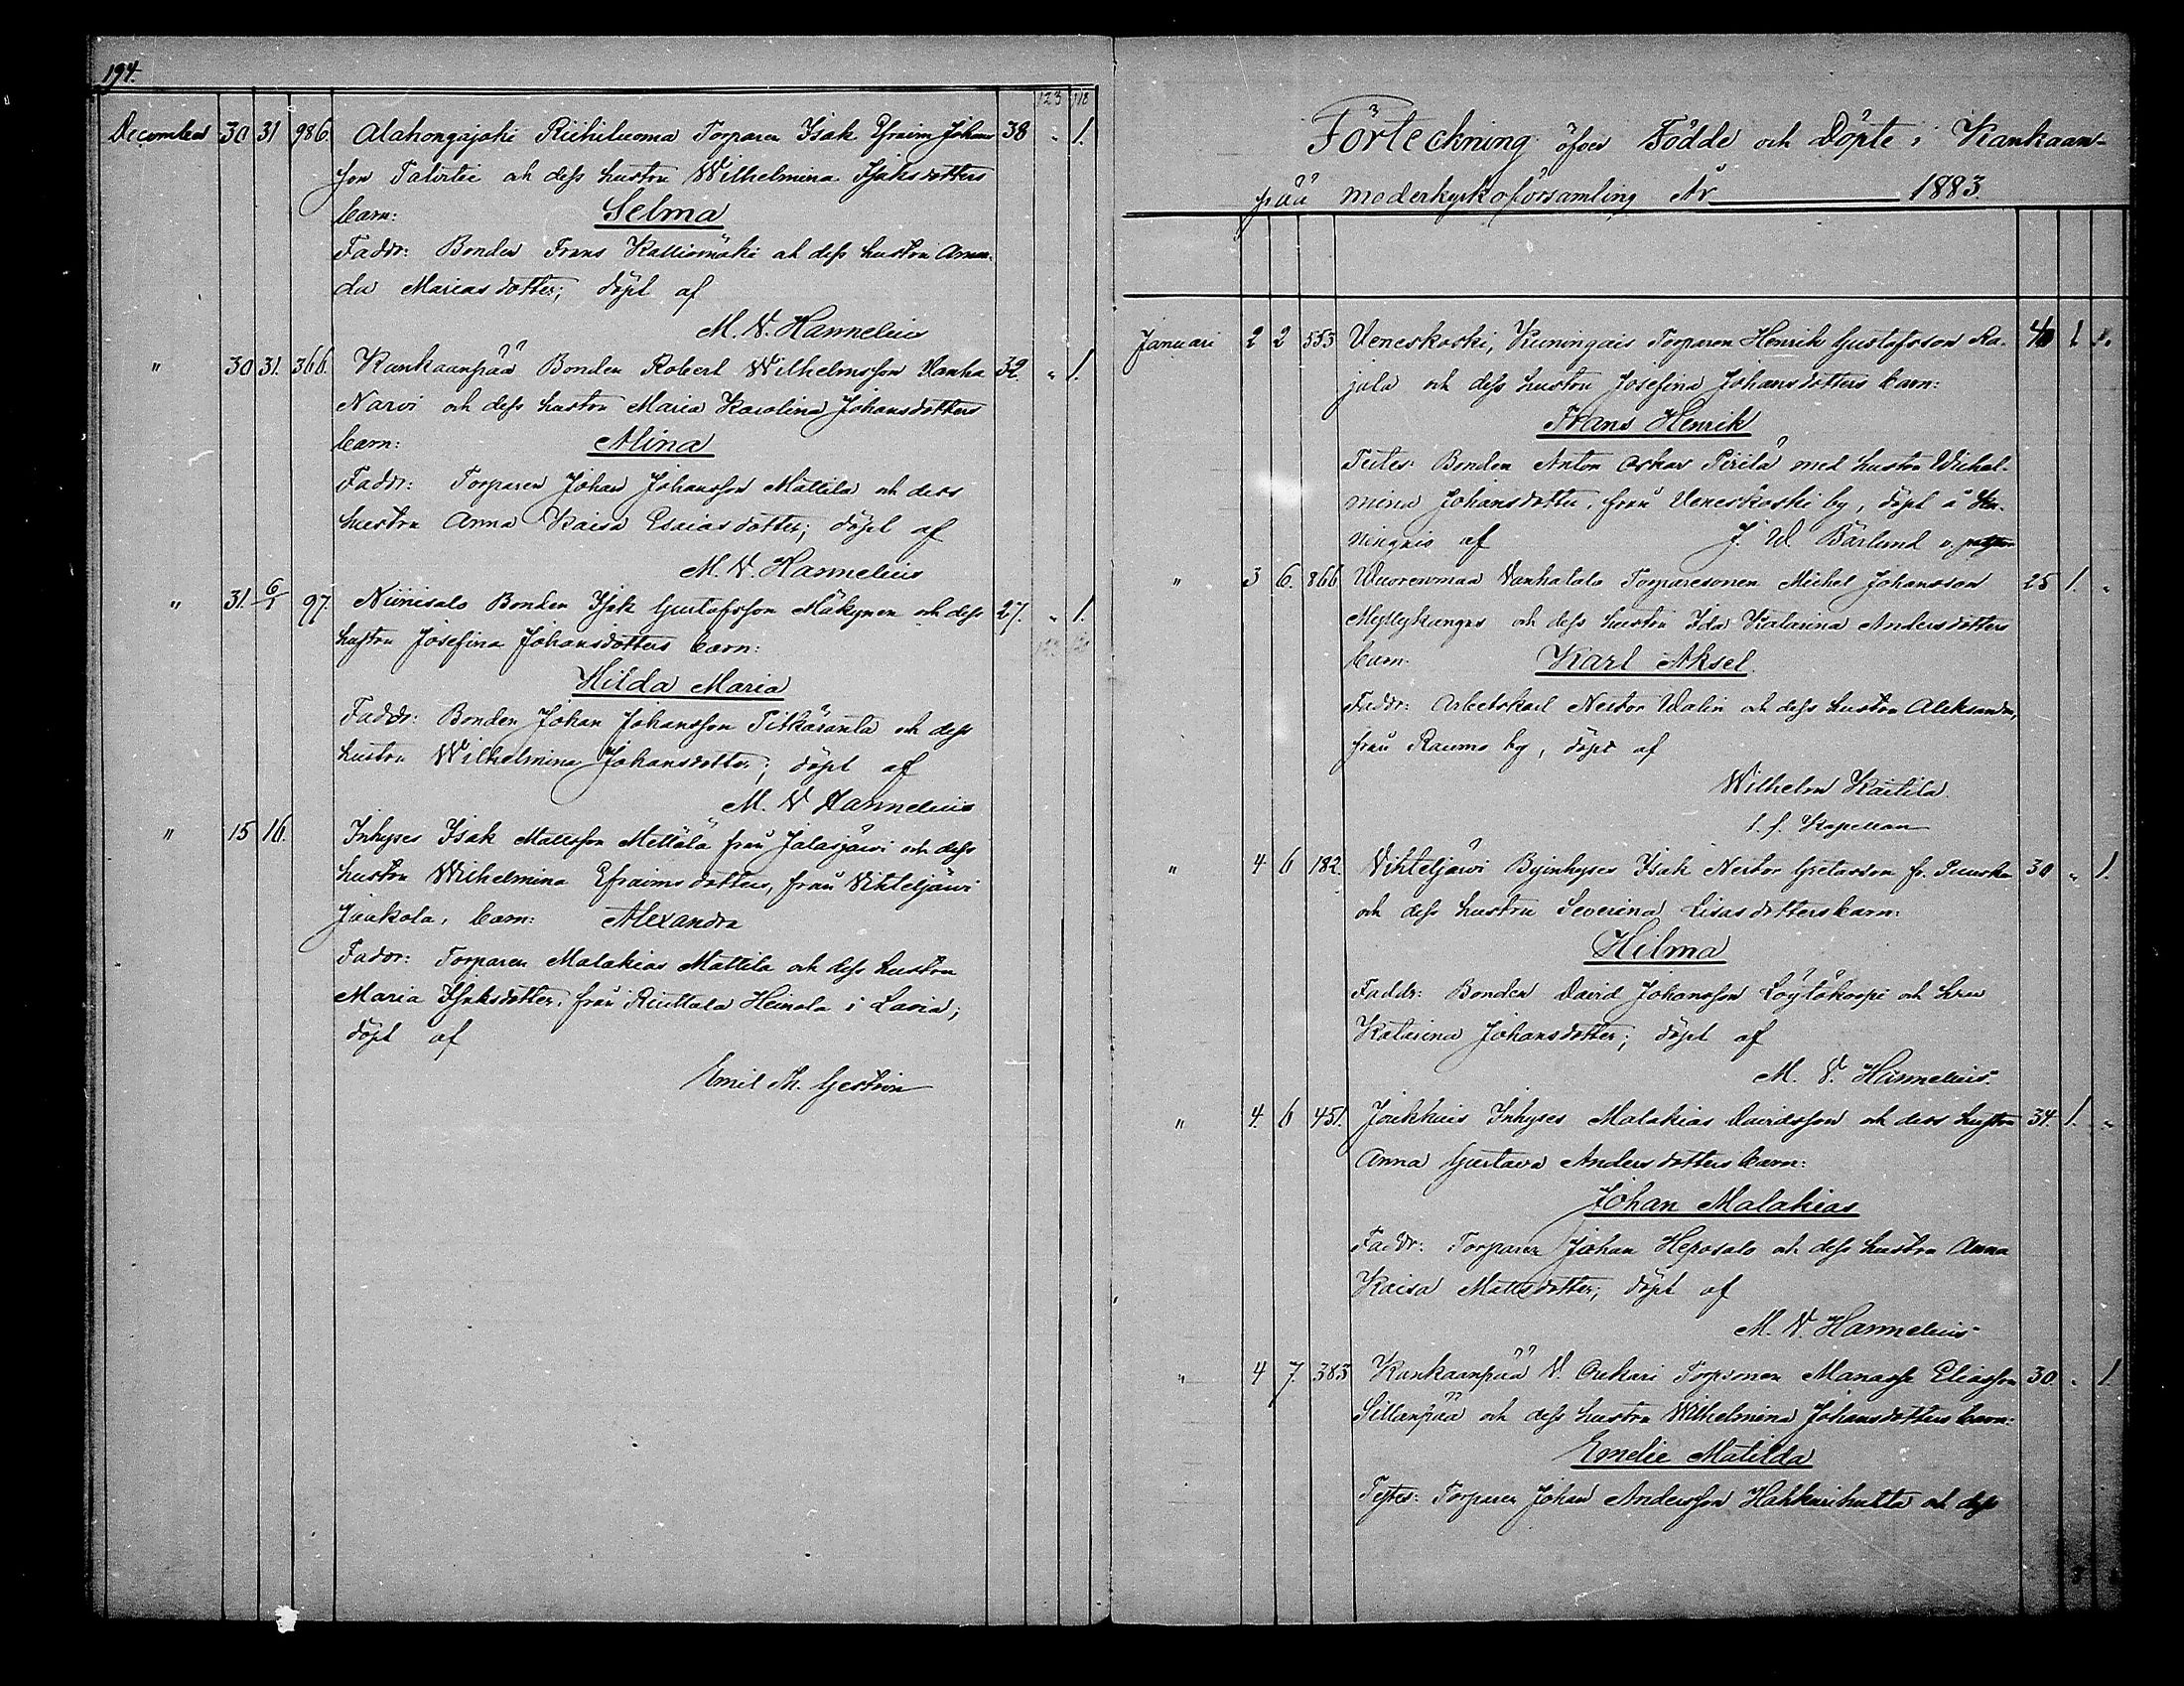 194.
123 118
December 30 31 986. Alahongajoki Riihiluoma Torparen Isak Efraim Johans 38 " 1.
son Talvitie och dess hustru Wilhelmina Isaksdotters
barn: Selma
Faddr: Bonden Frans Kalliomäki och dess hustru Aman-
da Mariasdotter; döpt af
M. V. Hannelius
" 30 31. 366. Kankaanpää Bonden Robert Wilhelmsson Vanha 32. " 1.
Narvi och dess hustru Maria Karolina Johansdotters
barn: Alina
Faddr: Torparen Johan Johansson Mattila och dess
hustru Anna Kaisa Esaiasdotter; döpt af
M. V. Hannelius
" 31. 6/1 97. Niinisalo Bonden Isak Gustafsson Mäkynen och dess 27. " 1.
hustru Josefina Johansdotters barn:
Hilda Maria
Faddr: Bonden Johan Johansson Pitkäranta och dess
hustru Wilhelmina Johansdotter; döpt af
M. V. Hannelius
" 15 16. Inhyses Isak Mattsson Mettälä från Jalasjärvi och dess
hustru Wilhelmina Efraimsdotters, från Vihteljärvi
Jaakola, barn: Alexandra
Faddr: Torparen Malakias Mattila och dess hustru
Maria Isaksdotter, från Riuttala Heinola i Lavia;
döpt af
Emil Th. Gestrin
Förteckning öfver Födde och Döpte i Kankaan-
pää moderkyrkoförsamling År 1883.
Januari 2 2 553 Veneskoski, Kuningais Torparen Henrik Gustafsson Ra- 40 1
jala och dess hustru Josefina Johansdotters barn:
Frans Henrik
Testes: Bonden Anton Oskar Pirilä med hustru Vichel-
mina Johansdotter, från Veneskoski by, döpt å Ku-
ningais af J. W. Bärlund v. pastor
" 3 6. 866 Wuorenmaa Vanhatalo Torparesonen Michel Johansson 25 1. "
Myllykangas och dess hustru Ida Katarina Andersdotters
barn. Karl Aksel.
Faddr: Arbetskarl Nestor Walin och dess hustru Aleksandra,
från Raumo by, döpt af
Wilhelm Kaitila.
t. f. Kapellan
" 4. 6 182. Vihteljärvi Byinhyses Isak Nestor Gretasson fr. Puuska 30 " 1.
och dess hustru Severina Lisasdotters barn:
Hilma
Faddr: Bonden David Johansson Löytökorpi och hru
Katarina Johansdotter; döpt af
M. V. Hannelius.
" 4. 6 451. Inhyses Malakias Davidsson och dess hustru 34. 1. "
Anna Gustava Andersdotters barn:
Johan Malakias
Faddr: Torparen Johan Heposalo och dess hustru Anna
Kaisa Mattsdotter; döpt af
M. V. Hannelius
" 4 7. 383 Kankaanpää V. Torpsonen Manasse Eliasson 30. " 1.
Sillanpää och dess hustru Wilhelmina Johansdotters barn:
Emelie Matilda
Testes: Torparen Johan Andersson Hakkarihutta och dess